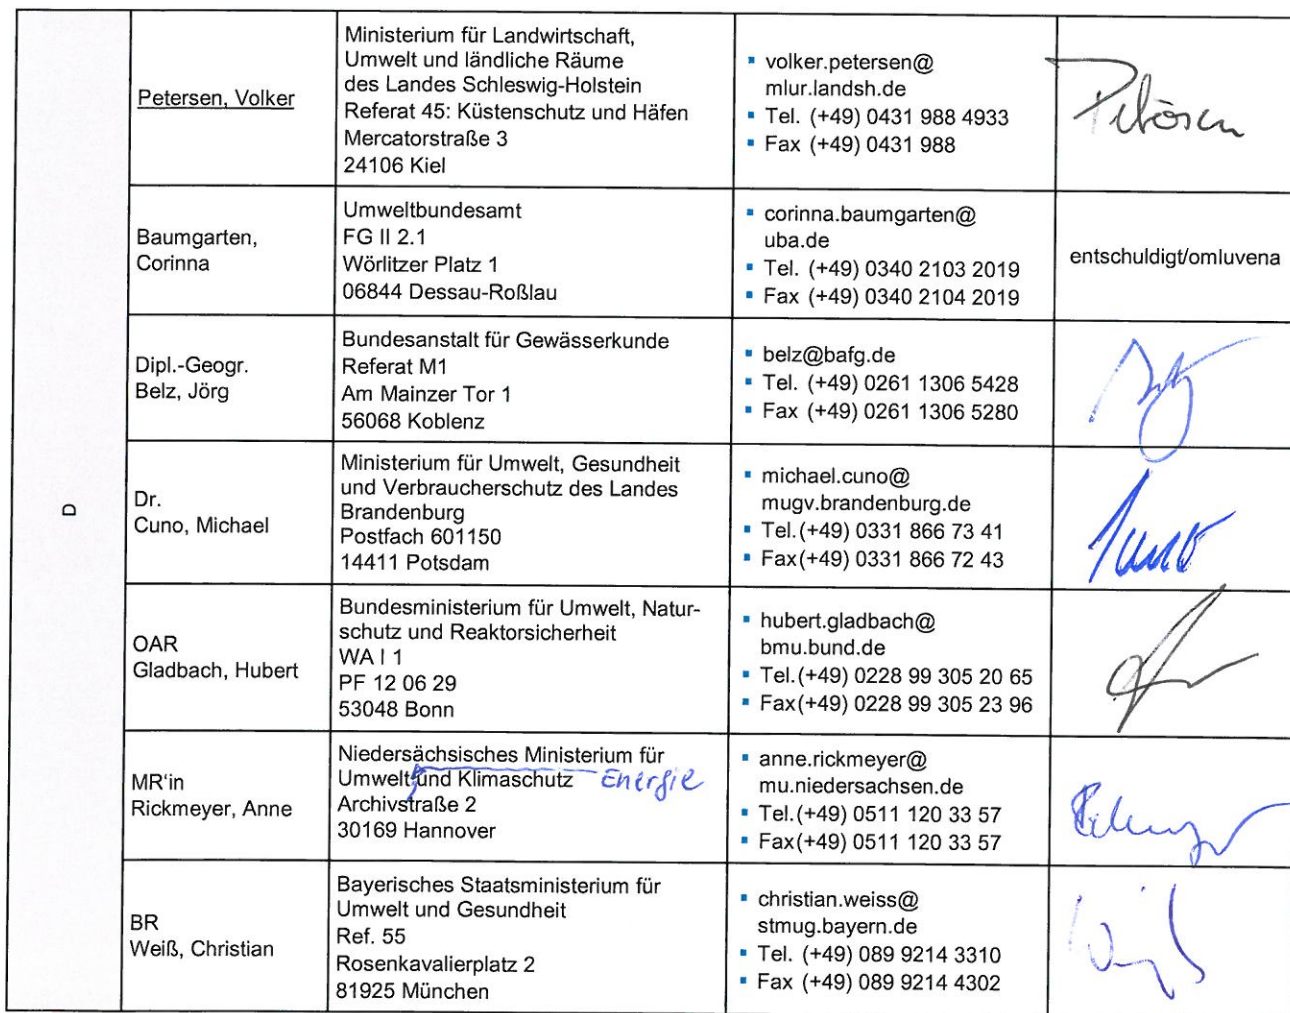 D
Petersen, Volker
Ministerium für Landwirtschaft,
Umwelt und ländliche Räume
des Landes Schleswig-Holstein
Referat 45: Küstenschutz und Häfen
Mercatorstraße 3
24106 Kiel
▪ volker.petersen@
mlur.landsh.de
▪ Tel. (+49) 0431 988 4933
▪ Fax (+49) 0431 988
Petersen
Baumgarten,
Corinna
Umweltbundesamt
FG II 2.1
Wörlitzer Platz 1
06844 Dessau-Roßlau
▪ corinna.baumgarten@
uba.de
▪ Tel. (+49) 0340 2103 2019
▪ Fax (+49) 0340 2104 2019
entschuldigt/omluvena
Dipl.-Geogr.
Belz, Jörg
Bundesanstalt für Gewässerkunde
Referat M1
Am Mainzer Tor 1
56068 Koblenz
▪ belz@bafg.de
▪ Tel. (+49) 0261 1306 5428
▪ Fax (+49) 0261 1306 5280
Dr.
Cuno, Michael
Ministerium für Umwelt, Gesundheit
und Verbraucherschutz des Landes
Brandenburg
Postfach 601150
14411 Potsdam
▪ michael.cuno@
mugv.brandenburg.de
▪ Tel.(+49) 0331 866 73 41
▪ Fax(+49) 0331 866 72 43
OAR
Gladbach, Hubert
Bundesministerium für Umwelt, Natur-
schutz und Reaktorsicherheit
WA I 1
PF 12 06 29
53048 Bonn
▪ hubert.gladbach@
bmu.bund.de
▪ Tel.(+49) 0228 99 305 20 65
▪ Fax(+49) 0228 99 305 23 96
MR'in
Rickmeyer, Anne
Niedersächsisches Ministerium für
Umwelt und Klimaschutz Energie
Archivstraße 2
30169 Hannover
▪ anne.rickmeyer@
mu.niedersachsen.de
▪ Tel.(+49) 0511 120 33 57
▪ Fax(+49) 0511 120 33 57
BR
Weiß, Christian
Bayerisches Staatsministerium für
Umwelt und Gesundheit
Ref. 55
Rosenkavalierplatz 2
81925 München
▪ christian.weiss@
stmug.bayern.de
▪ Tel. (+49) 089 9214 3310
▪ Fax (+49) 089 9214 4302